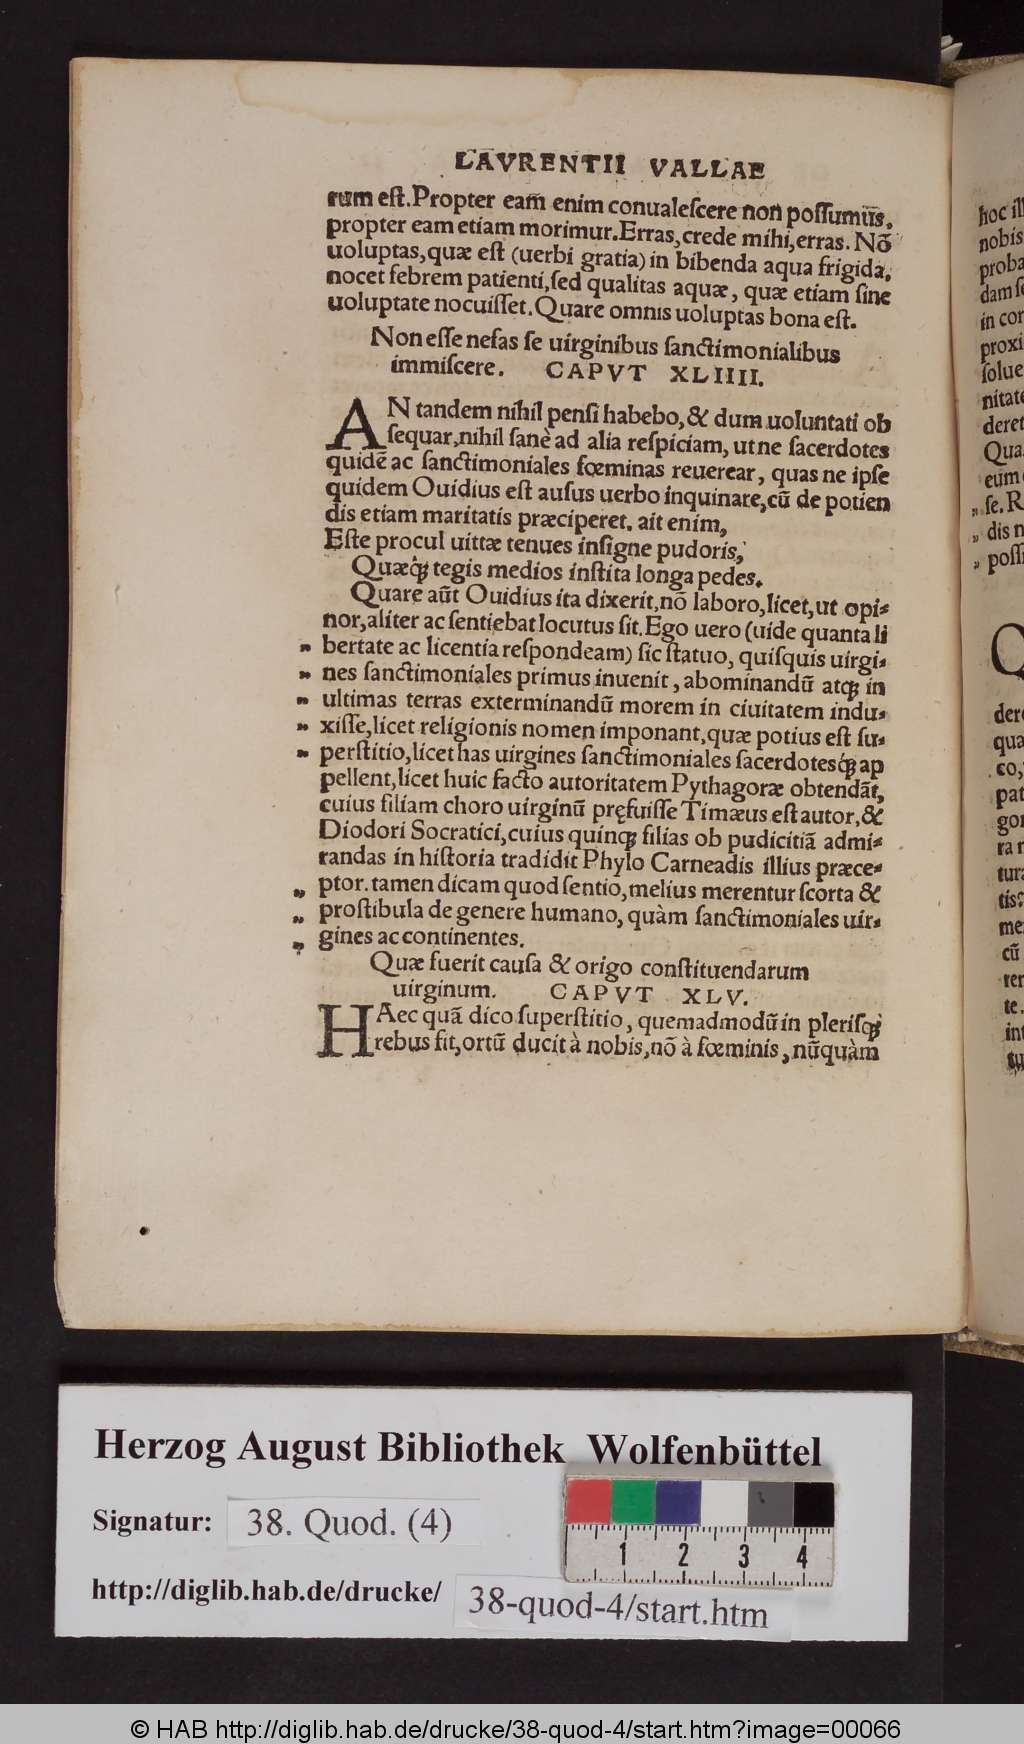 LAVRENTII VALLAE
rum eſt. Propter eam̄ enim conualeſcere non poſſumus.
propter eam etiam morimur. Erras, crede mihi, erras. Nō
uoluptas, quæ eſt (uerbi gratia) in bibenda aqua frigida.
nocet febrem patienti, ſed qualitas aquæ, quæ etiam ſine
uoluptate nocuiſſet. Quare omnis uoluptas bona eſt.
Non eſſe nefas ſe uirginibus ſanctimonialibus
immiſcere. CAPVT XLIIII.
AN tandem nihil penſi habebo, & dum uoluntati ob
ſequar, nihil ſanè ad alia reſpiciam, ut ne ſacerdotes
quidē ac ſanctimoniales fœminas reuerear, quas ne ipſe
quidem Ouidius eſt auſus uerbo inquinare, cū de potien
dis etiam maritatis præciperet. ait enim,
Eſte procul uittæ tenues inſigne pudoris,
Quæq́ꝫ tegis medios inſtita longa pedes.
Quare aūt Ouidius ita dixerit, nō laboro, licet, ut opi⸗
nor, aliter ac ſentiebat locutus ſit. Ego uero (uide quanta li
„ bertate ac licentia reſpondeam) ſic ſtatuo, quiſquis uirgi⸗
„ nes ſanctimoniales primus inuenit, abominandū atqꝫ in
„ ultimas terras exterminandū morem in ciuitatem indu⸗
„ xiſſe, licet religionis nomen imponant, quæ potius eſt ſu⸗
„ perſtitio, licet has uirgines ſanctimoniales ſacerdotesq́ꝫ ap
pellent, licet huic facto autoritatem Pythagoræ obtendāt,
cuius filiam choro uirginū pręfuiſſe Timæus eſt autor, &
Diodori Socratici, cuius quinqꝫ filias ob pudicitiā admi⸗
randas in hiſtoria tradidit Phylo Carneadis illius præce⸗
„ ptor. tamen dicam quod ſentio, melius merentur ſcorta &
„ proſtibula de genere humano, quàm ſanctimoniales uir⸗
„ gines ac continentes.
Quæ fuerit cauſa & origo conſtituendarum
uirginum. CAPVT XLV.
HAec quā dico ſuperſtitio, quemadmodū in pleriſq́ꝫ
rebus fit, ortū ducit à nobis, nō à fœminis, nūquàm
hoc ill
nobis
proba
dam ſe
in cor
proxi
ſolue
nitate
deret
Qua
eum
„ ſe. R
„ dis n
„ poſſ
Q
dere
qua
co,
pat
gor
ra r
tura
tis?
me
cū
rer
te.
int
Herzog August Bibliothek Wolfenbüttel
Signatur: 38. Quod. (4)
1 2 3 4
http://diglib.hab.de/drucke/ 38-quod-4/start.htm
© HAB http://diglib.hab.de/drucke/38-quod-4/start.htm?image=00066